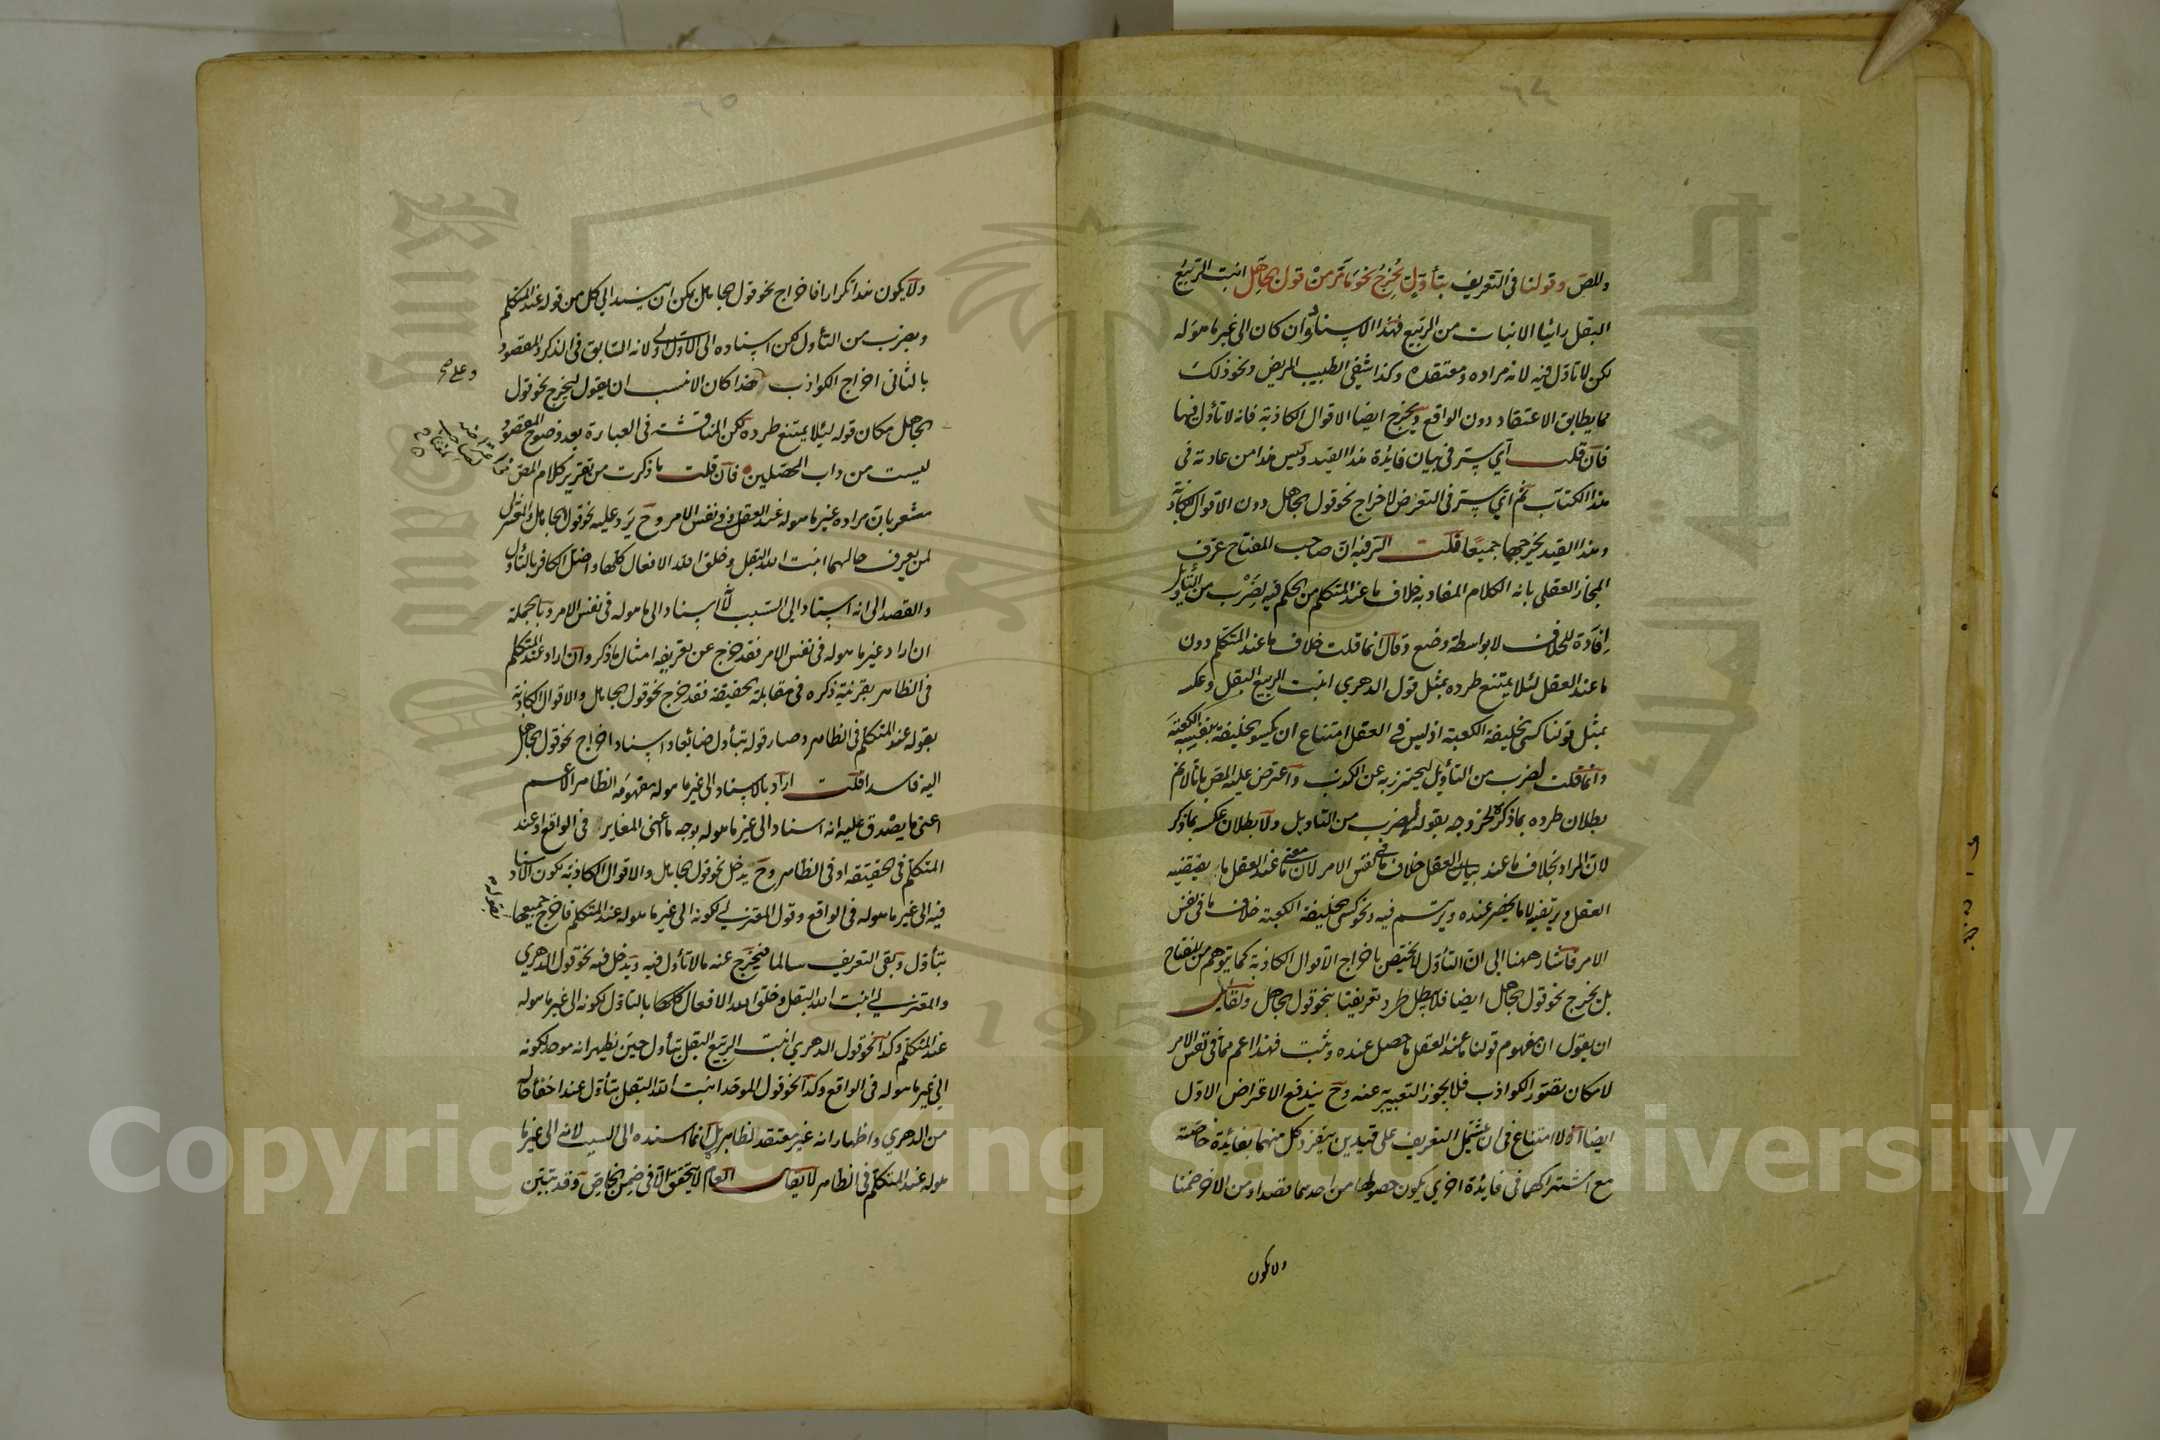 ٦٤
وللص وقولنا في التعريف بتأول يخرج نحو ما مر من قول الجاهل انبت الربيع
البقل رائيا الانبات من الربيع فهذا الاسناد وان كان الى غير ما هو له
لكن لا تأول فيه لانه مراده ومعتقده وكذا شفى الطبيب المريض ونحو ذلك
مما يطابق الاعتقاد دون الواقع ويخرج ايضا الاقوال الكاذبة فانه لا تأول فيها
فان قلت اي سر في بيان فائدة هذا القيد وليس هذا من عادته في
هذا الكتاب ثم اي سر في التعرض لاخراج نحو قول الجاهل دون الاقوال الكاذبة
وهذا القيد يخرجها جميعا قلت السر فيه ان صاحب المفتاح عرف
المجاز العقلي بانه الكلام المفاد به خلاف ما عند المتكلم من الحكم فيه لضرب من التأويل
افادة للخلاف لا بواسطة وضع وقال انما قلت خلاف ما عند المتكلم دون
ما عند العقل لئلا يمتنع طرده بمثل قول الدهري انبت الربيع البقل وعكسه
بمثل قولنا كسى الخليفة الكعبة اذ ليس في العقل امتناع ان يكسو الخليفة بنفسه الكعبة
وانما قلت لضرب من التأويل ليحترز به عن الكذب واعترض عليه المص بانا لا نم
بطلان طرده بما ذكره لخروجه بقوله لضرب من التاويل ولا بطلان عكسه بما ذكر
لان المراد بخلاف ما عند العقل خلاف ما في نفس الامر لان معنى ما عند العقل ما يقتضيه
العقل ويرتضيه لا ما يحضر عنده ويرتسم فيه ونحو كسى الخليفة الكعبة خلاف ما في نفس
الامر فاشار ههنا الى ان التأول لا يختص باخراج الاقوال الكاذبة كما يتوهم من المفتاح
بل يخرج نحو قول الجاهل ايضا فلا يبطل طرد تعريفنا بنحو قول الجاهل ولقائل
ان يقول ان مفهوم قولنا ما عند العقل ما حصل عنده وثبت فهذا اعم مما في نفس الامر
لامكان تصور الكواذب فلا يجوز التعبير به عنه وح يندفع الاعتراض الاول
ايضا اذ لا امتناع في ان يشتمل التعريف على قيدين ينفرد كل منهما بفائدة خاصة
مع اشتراكهما في فايدة اخرى يكون حصولها من احدهما قصدا ومن الاخر ضمنا
ولا يكون
٦٥
ولا يكون هذا تكرارا فاخراج نحو قول الجاهل يمكن ان يسند الى كل من قوله عند المتكلم
وبضرب من التأول لكن اسناده الى الاول اولى لانه السابق في الذكر والمقصود
بالثاني اخراج الكواذب هذا كان الانسب ان يقول ليخرج نحو قول
وعلى صح
الجاهل مكان قوله لئلا يمتنع طرده لكن المناقشة في العبارة بعد وضوح المقصود
ليست من داب المحصلين فان قلت ما ذكرت من تقرير كلام المص
مشعر بان مراده غير ما هو له عند العقل وفي نفس الامر وح يرد عليه نحو قول الجاهل والمعتزلي
لمن يعرف حالهما انبت الله البقل وخلق الله الافعال كلها واضل الكافر بالتأول
والقصد الى انه اسناد الى السبب لا اسناد الى ما هو له في نفس الامر وبالجملة
ان اراد غير ما هو له في نفس الامر فقد خرج عن تعريفه امثال ما ذكر وان اراد عند المتكلم
في الظاهر بقرينة ذكره في مقابلة الحقيقة فقد خرج نحو قول الجاهل والاقوال الكاذبة
بقوله عند المتكلم في الظاهر وصار قوله بتأول ضائعا واسناد اخراج نحو قول الجاهل
اليه فاسدا قلت اراد بالاسناد الى غير ما هو له مفهومه الظاهر الاعم
اعني ما يصدق عليه انه اسناد الى غير ما هو له بوجه ما اعني المغاير في الواقع او عند
المتكلم في الحقيقة او في الظاهر وح يدخل نحو قول الجاهل والاقوال الكاذبة لكون الاسناد
فيه الى غير ما هو له في الواقع وقول المعتزلي لكونه الى غير ما هو له عند المتكلم فاخرج جميعها
بقوله
بتأول وبقي التعريف سالما فيخرج عنه ما لا تأول فيه ويدخل فيه نحو قول الدهري
والمعتزلي انبت الله البقل وخلق الله الافعال كلها بالتاول لكونه الى غير ما هو له
عند المتكلم وكذا نحو قول الدهري انبت الربيع البقل بتأول حين يظهر انه موحد لكونه
الى غير ما هو له في الواقع وكذا نحو قول الموحد انبت الله البقل بتأول عند اخفاء حاله
من الدهري واظهار انه غير معتقد لظاهره بل انما اسنده الى السبب لانه الى غير ما
هو له عند المتكلم في الظاهر لا يقال العام لا يتحقق الا في ضمن الخاص وقد تبين
Copyright © King Saud University
1957